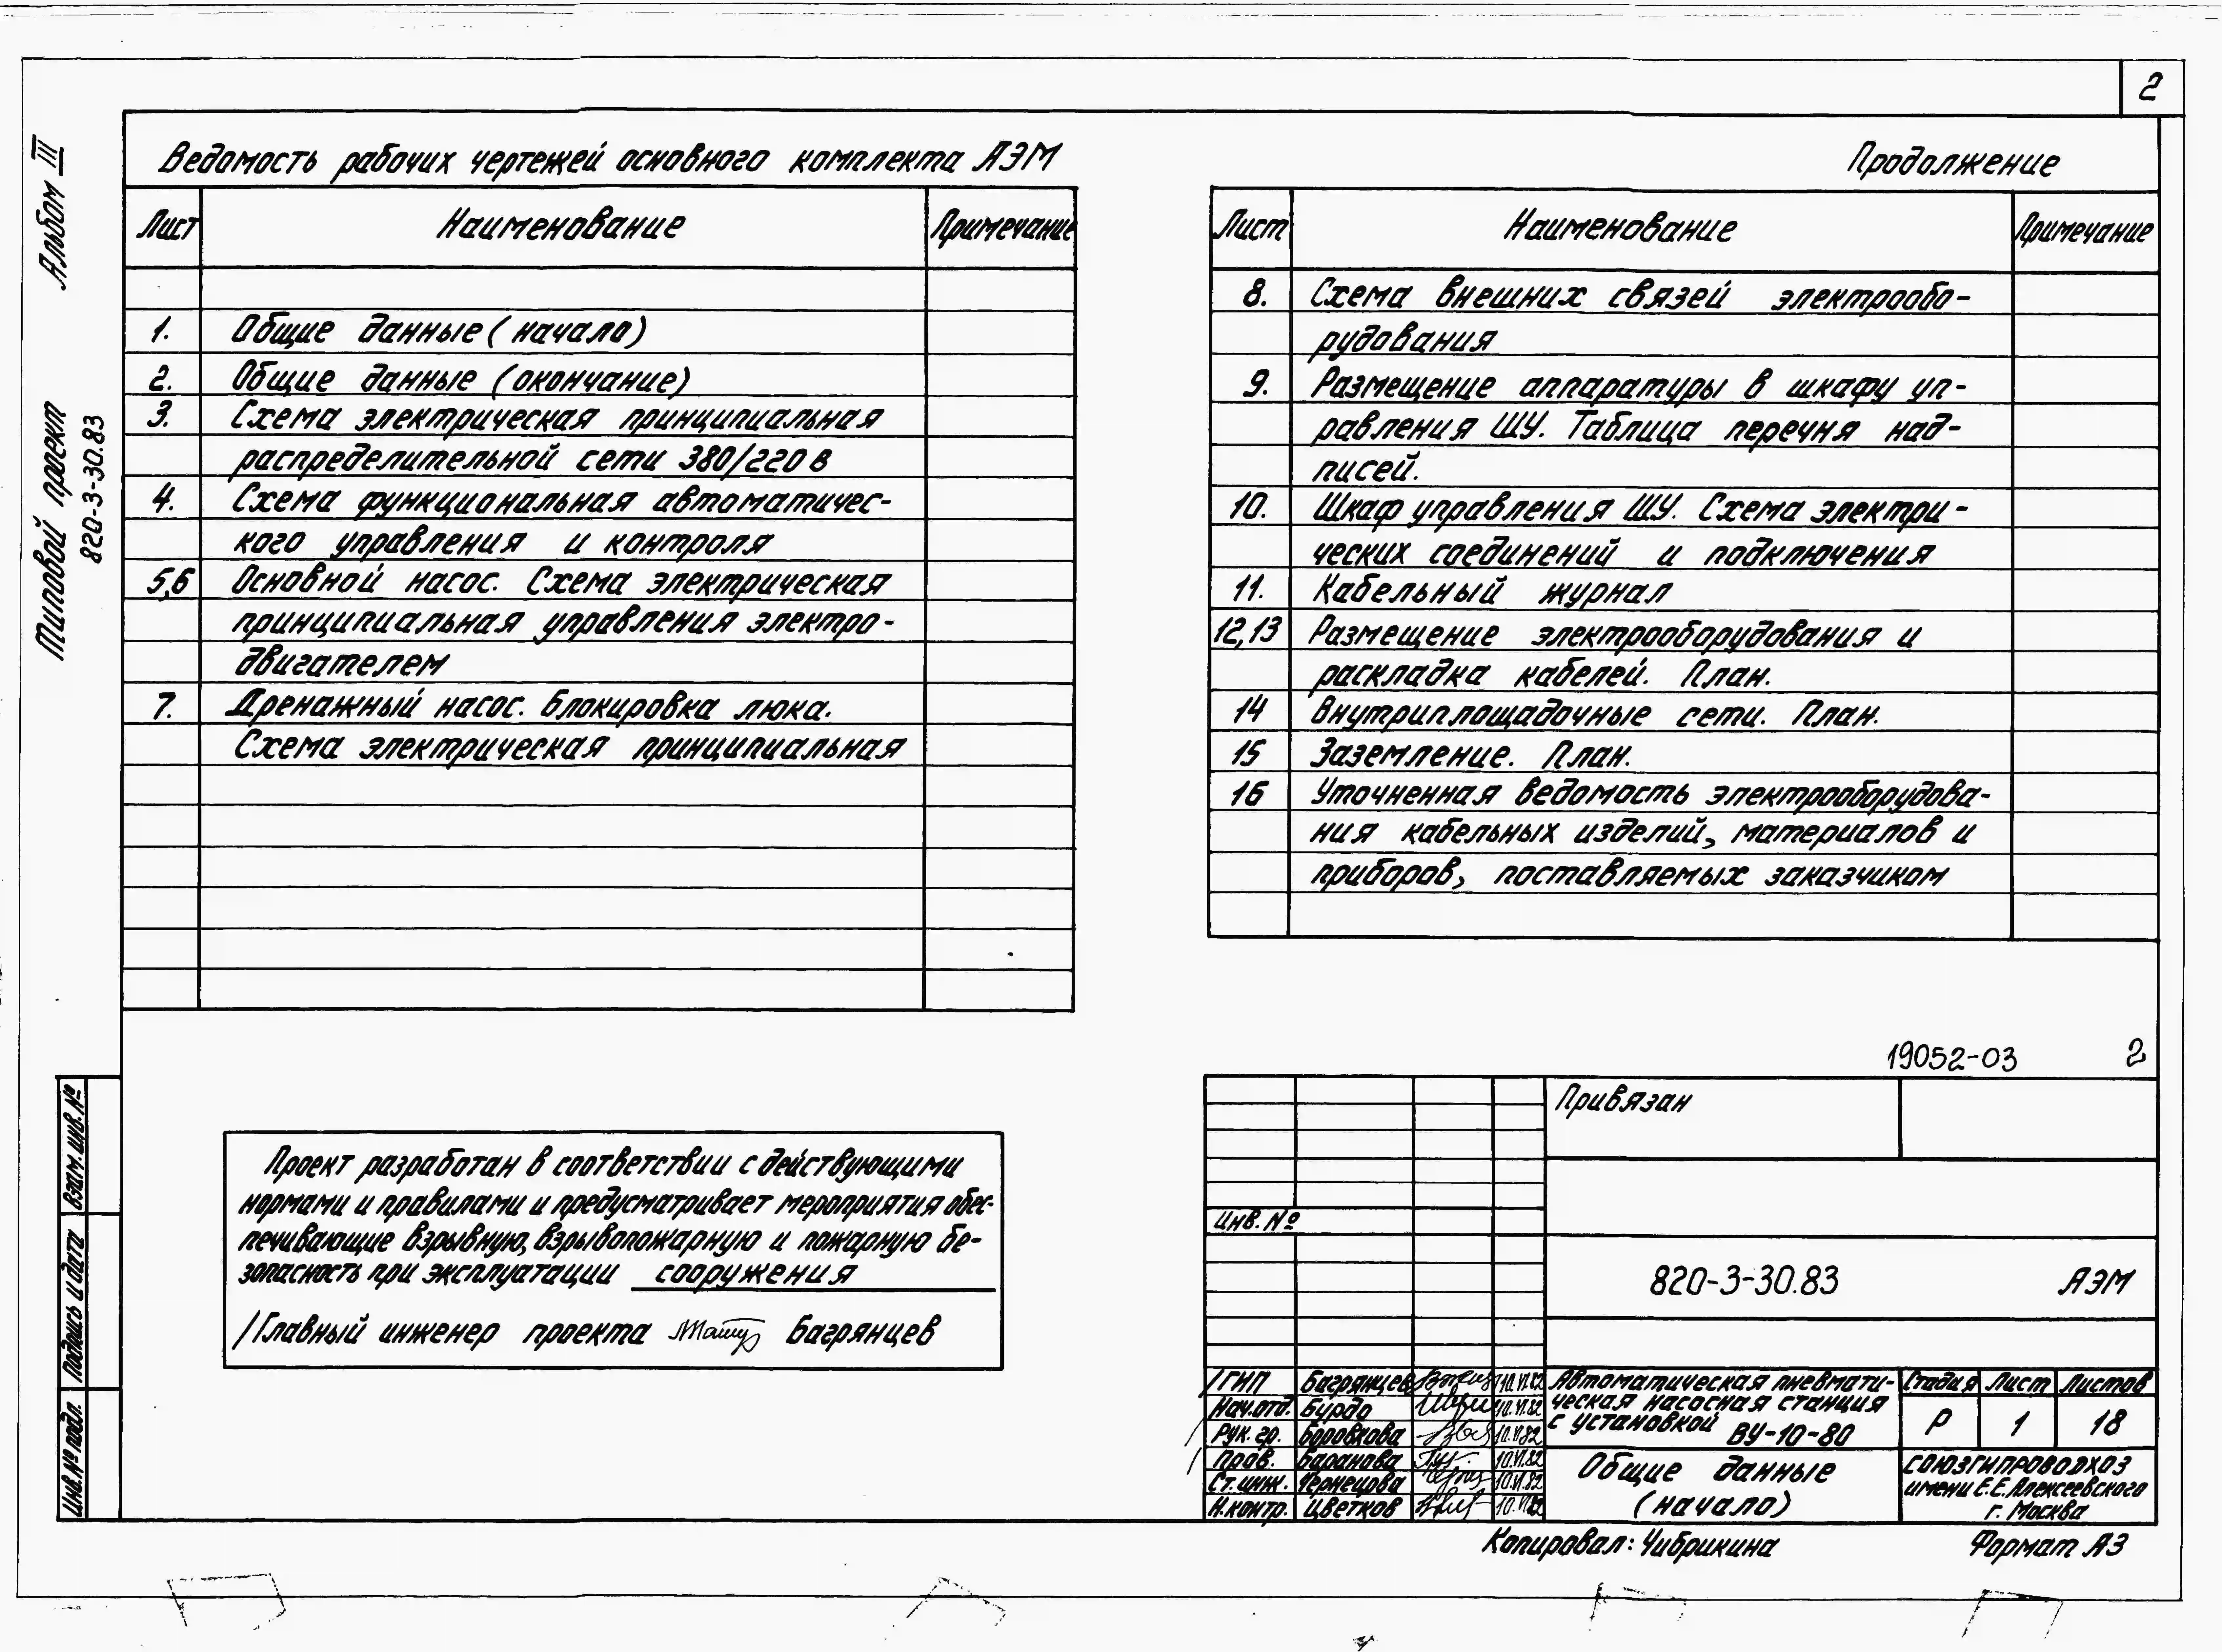 2
Альбом III
Типовой проект
820-3-30.83
Ведомость рабочих чертежей основного комплекта АЭМ
Лист Наименование Примечание
1. Общие данные (начало)
2. Общие данные (окончание)
3. Схема электрическая принципиальная
распределительной сети 380/220 в
4. Схема функциональная автоматичес-
кого управления и контроля
5,6 Основной насос. Схема электрическая
принципиальная управления электро-
двигателем
7. Дренажный насос. Блокировка люка.
Схема электрическая принципиальная
Продолжение
Лист Наименование Примечание
8. Схема внешних связей электрообо-
рудования
9. Размещение аппаратуры в шкафу уп-
равления ШУ. Таблица перечня над-
писей.
10. Шкаф управления ШУ. Схема электри-
ческих соединений и подключения
11. Кабельный журнал
12,13 Размещение электрооборудования и
раскладка кабелей. План.
14 Внутриплощадочные сети. План.
15 Заземление. План.
16 Уточненная ведомость электрооборудова-
ния кабельных изделий, материалов и
приборов, поставляемых заказчиком
19052-03 2
Проект разработан в соответствии с действующими
нормами и правилами и предусматривает мероприятия обес-
печивающие взрывную, взрывопожарную и пожарную бе-
зопасность при эксплуатации сооружения
Главный инженер проекта Багрянцев
Взам. инв. №
Подпись и дата
Инв. № подл.
Привязан
Инв. №
820-3-30.83 АЭМ
ГИП Багрянцев 10.VI.82
Нач.отд. Бурдо 10.VI.82
Рук. гр. Боровкова 10.VI.82
Пров. Баранова 10.VI.82
Ст. инж. Чернецова 10.VI.82
Н.контр. Цветков 10.VI.82
Автоматическая пневмати-
ческая насосная станция
с установкой ВУ-10-80
Стадия Лист Листов
Р 1 18
Общие данные
(начало)
СОЮЗГИПРОВОДХОЗ
имени Е.Е. Алексеевского
г. Москва
Копировал: Чибрикина Формат А3